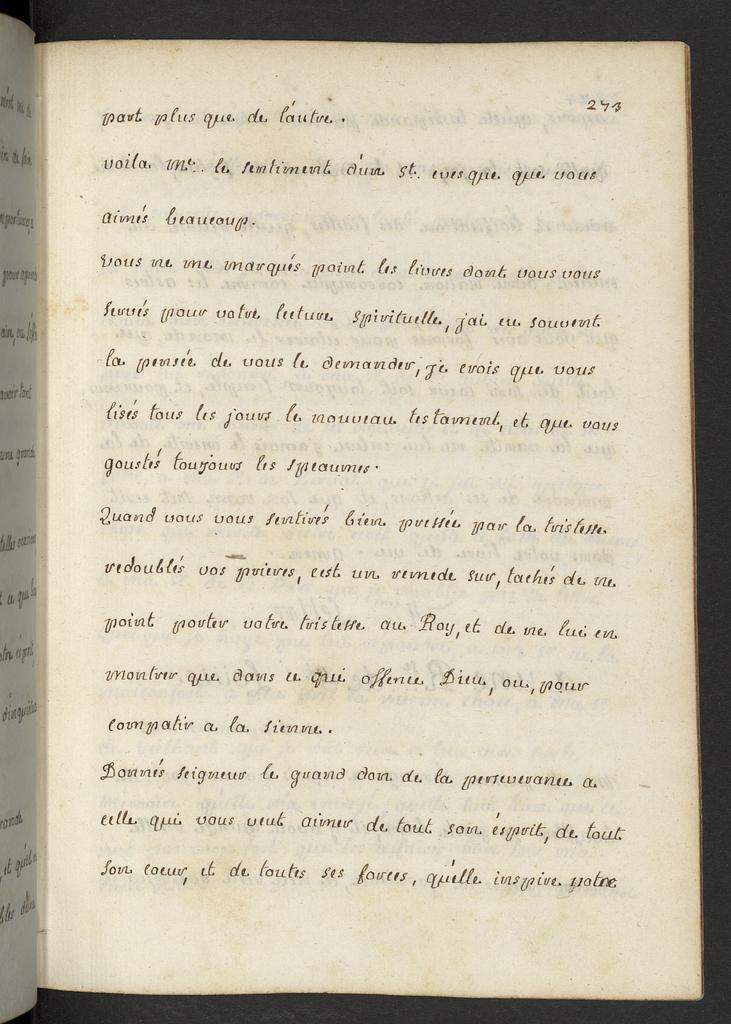 273
part plus que de l'autre.
voila Me.. le sentiment d'un St. evesque que vous
aimés beaucoup.
Vous ne me marqués point les livres dont vous vous
servés pour votre lecture spirituelle, j'ai eu souvent
la pensée de vous le demander, je crois que vous
lisés tous les jours le nouveau testament, et que vous
goustés toujours les speaumes.
Quand vous vous sentirés bien pressée par la tristesse
redoublés vos prieres, c'est un remede sur, tachés de ne
point porter votre tristesse au Roy, et de ne lui en
montrer que dans ce qui offence Dieu, ou, pour
compatir a la sienne.
Donnés seigneur le grand don de la perseverance a
celle qui vous veut aimer de tout son ésprit, de tout
son coeur, et de toutes ses forces, qu'elle inspire notre